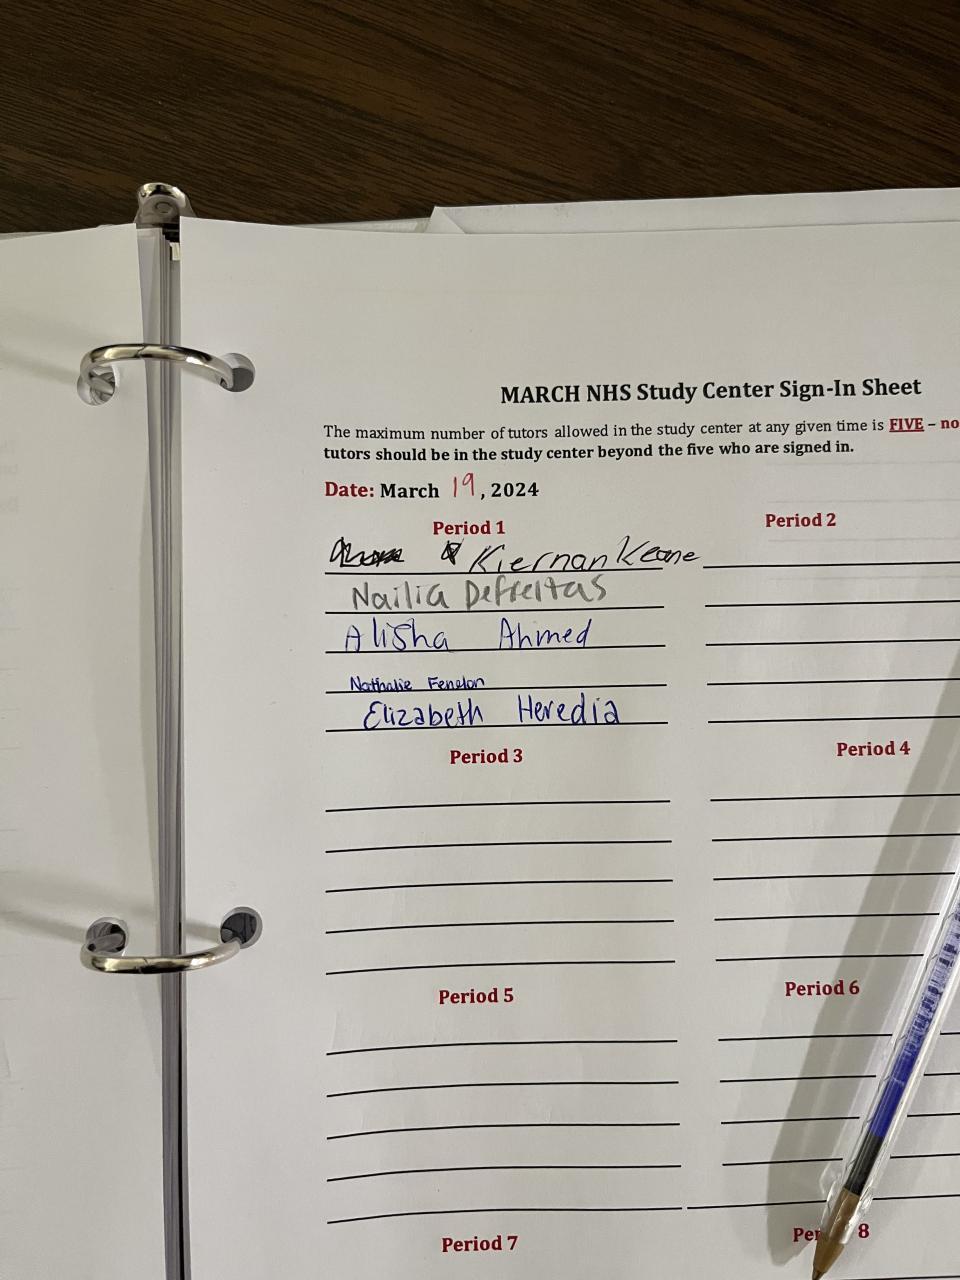 MARCH NHS Study Center Sign-In Sheet
The maximum number of tutors allowed in the study center at any given time is FIVE – no
tutors should be in the study center beyond the five who are signed in.
Date: March 19, 2024
Period 1 Period 2
Kiernan Keane
Nailia Defreitas
Alisha Ahmed
Nathalie Fenelon
Elizabeth Heredia
Period 3 Period 4
Period 5 Period 6
Period 7 8